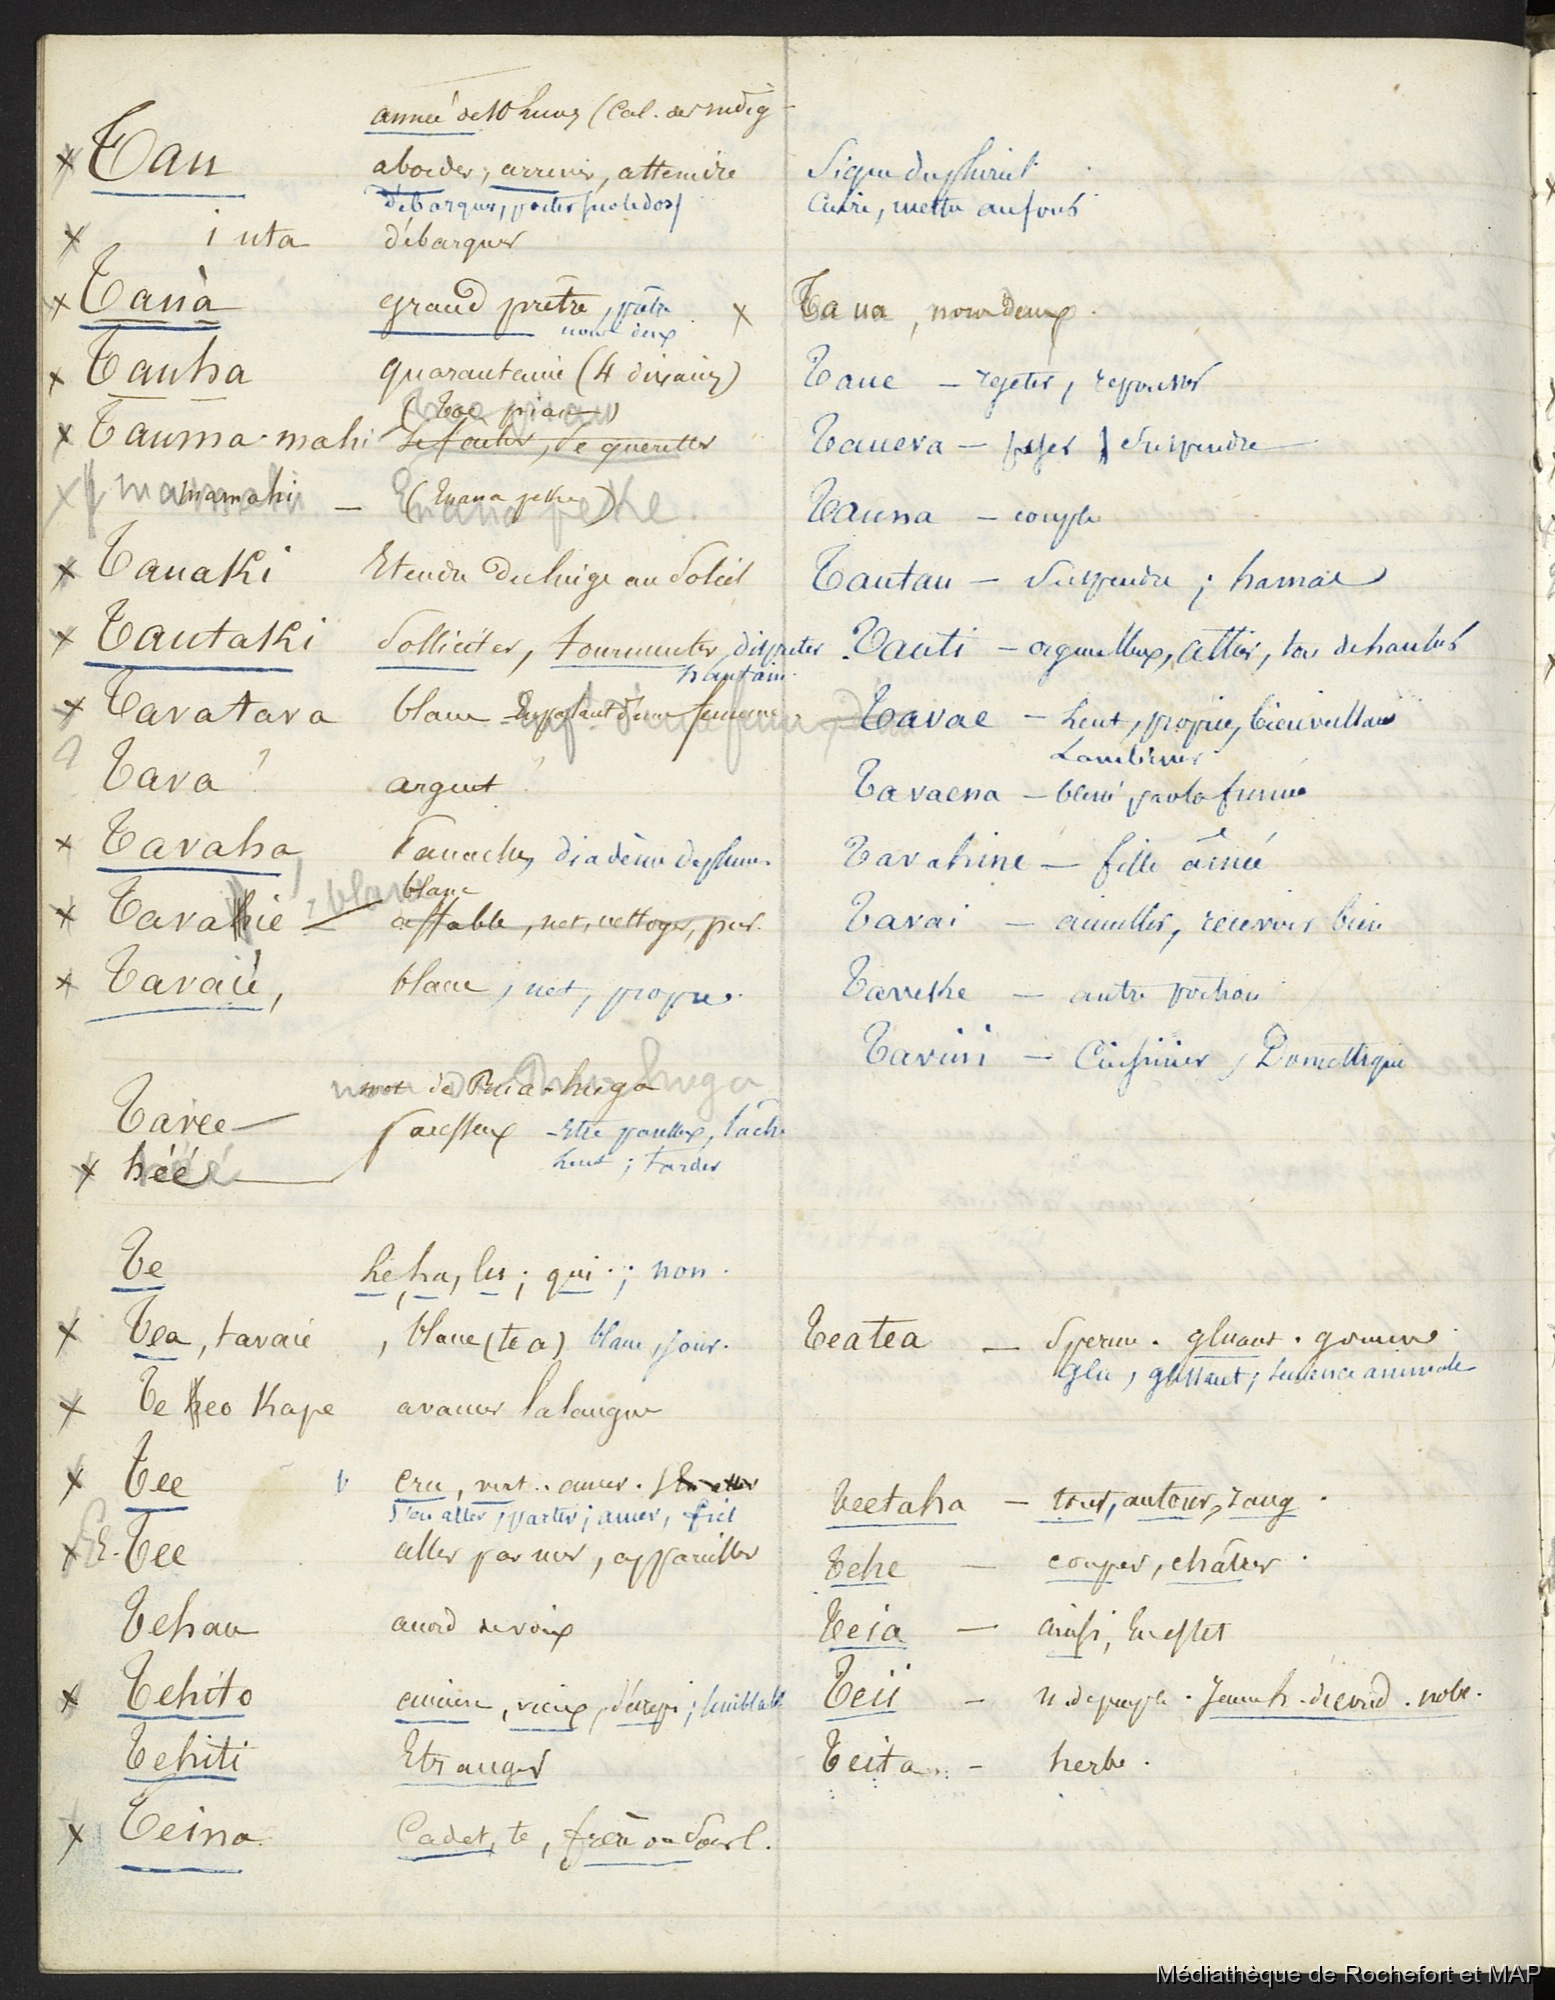 année de 10 lunes (Cal. des indig
Tau aborder, arriver, atteindre
débarquer, porter sur le dos
i uta débarquer
Tauà grand prêtre, prêtre
nous deux
Tauha quarantaine (4 dixaines)
Tauma-mahi (Toe piau)
mamahi — (Enana peke)
Tauaki Etendre du linge au Soleil
Tautaki Solliciter, tourmenter, disputer
hautain
Tavatava blanc d'une femme
Tava ? argent ?
Tavaha Panache, diadème de plumes
blanc
Tavahie — affable, net, nettoyer, pur.
Tavaiè, blanc, net, propre.
mot de Pua-huga
Tavee — paresseux Etre paresseux, lâche
héé lent ; tarder
Te le, la, les ; qui ; non.
Tea, tavaié , blanc (te a) blanc, jour.
Te heo Kape avancer la langue
Tee cru, vert. amer.
s'en aller, partir ; amer, fiel
E. Tee aller par mer, appareiller
Tehau accord de voix
Tehito ancien, vieux, décrépi ; semblable
Tehiti Etranger
Teina Cadet, te, frère ou Soeur.
Signe du pluriel
Cuire, mettre au four
Taua, nous deux.
Taue — rejeter, repousser
Tauera — suspendre
Tauna — couple
Tautau — Suspendre ; hamac
Tauti — orgueilleux, altier, ton de hauteur
Tavae — lent, propre, bienveillant
Lambiner
Tavaena — par la fumée
Tavahine — fille aînée
Tavai — accueillir, recevoir bien
Taveke — autre portion
Tavini — Cuisinier, Domestique
Teatea — Sperme. gluant. gomme.
Glu, glissant, semence animale
Teetaha — tout, autour, rang.
Tehe — couper, châtrer.
Teia — ainsi, En effet
Teii — n. de peuple. Jeune h. d'écund. noble.
Teita — herbe.
Médiathèque de Rochefort et MAP